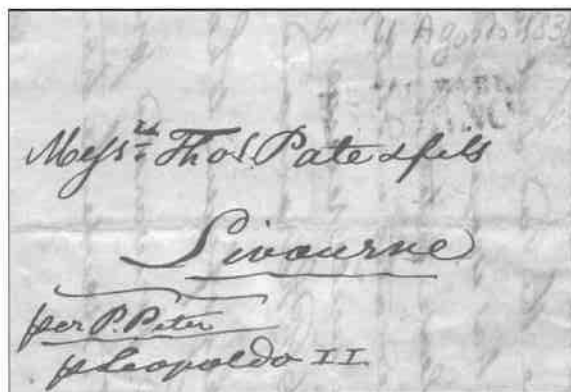 4 Agosto 183
Messrs Thos. Pate & fils
Livourne
per P. Peter
p Leopoldo II